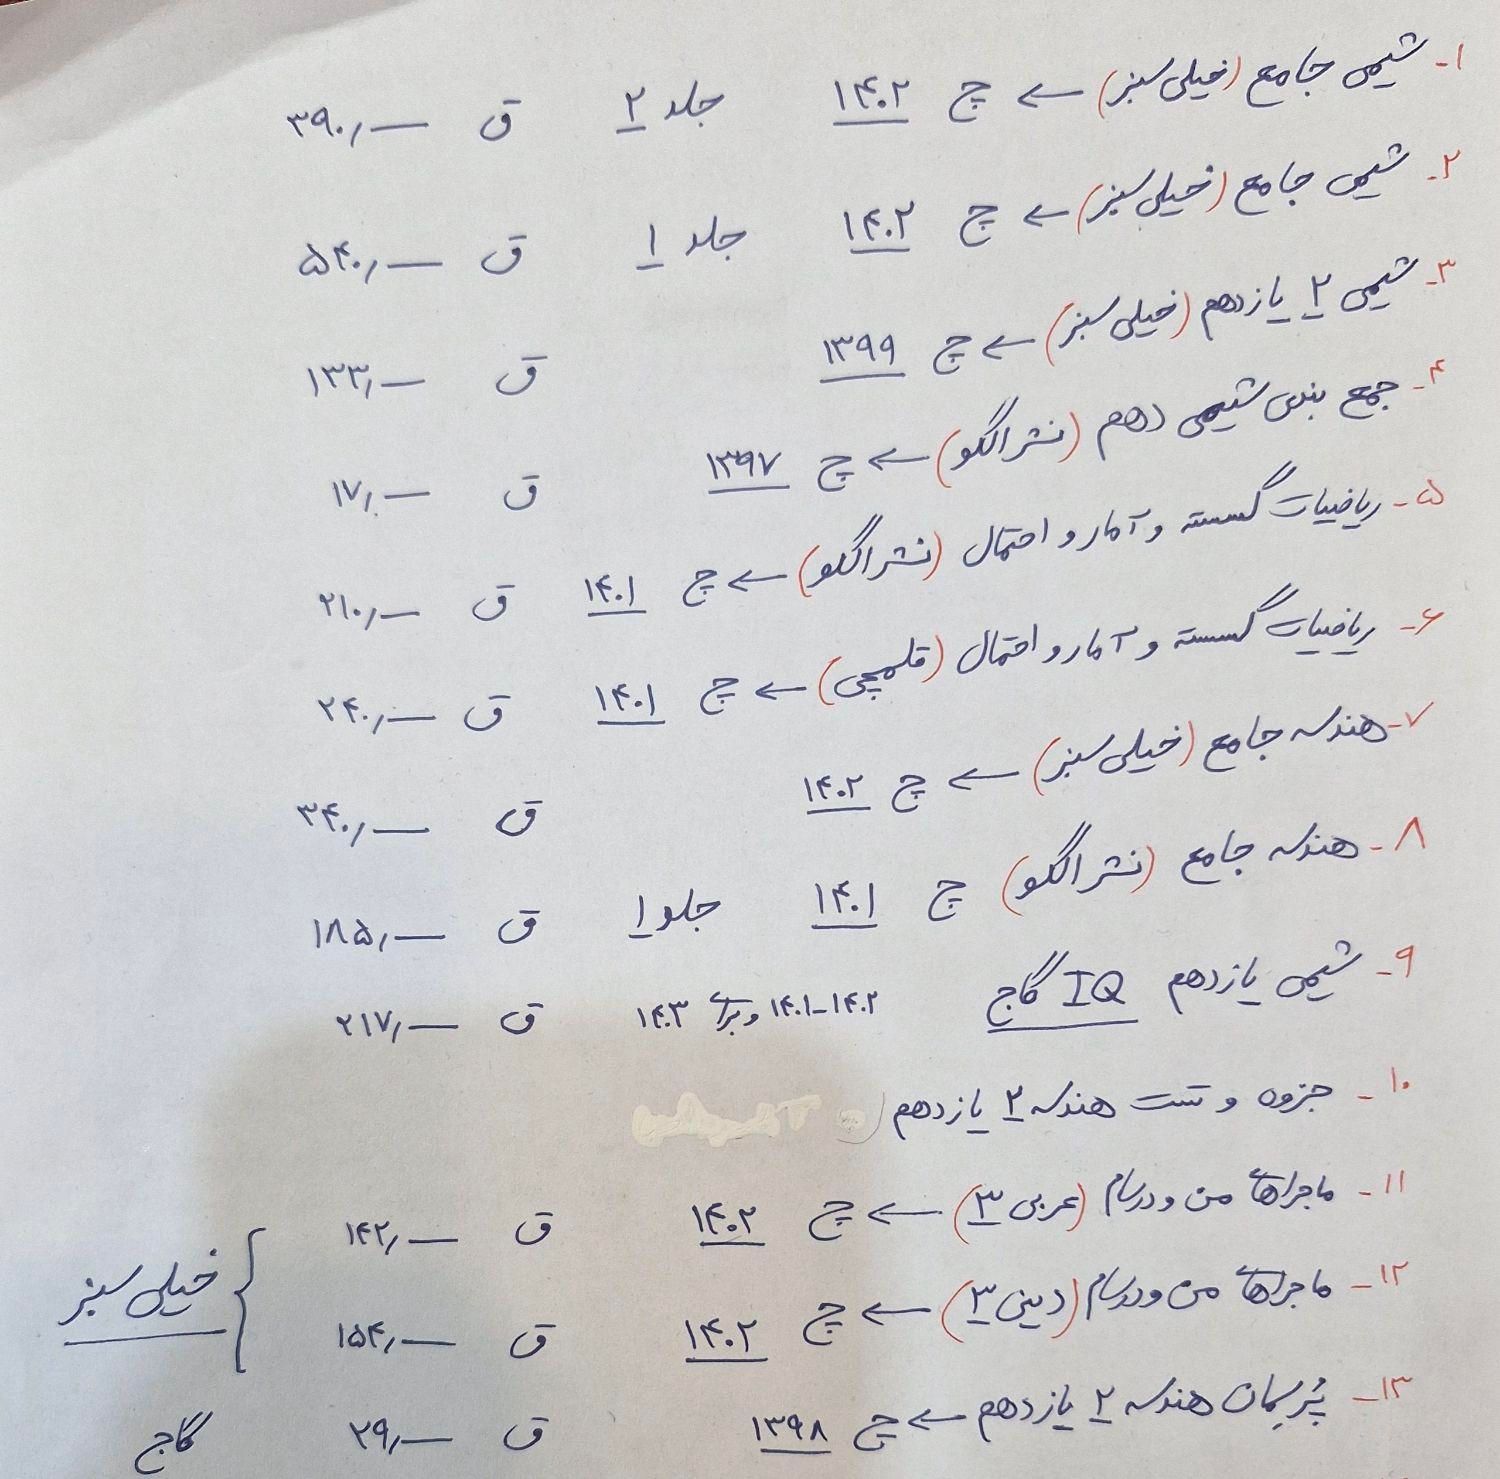 ۱- شیمی جامع (خیلی سبز) ← چ ۱۴۰۲ جلد ۲ ق ۳۹۰٫—
۲- شیمی جامع (خیلی سبز) ← چ ۱۴۰۲ جلد ۱ ق ۵۴۰٫—
۳- شیمی ۲ یازدهم (خیلی سبز) ← چ ۱۳۹۹ ق ۱۳۳٫—
۴- جمع بندی شیمی دهم (نشر الگو) ← چ ۱۳۹۷ ق ۱۷٫—
۵- ریاضیات گسسته و آمار و احتمال (نشر الگو) ← چ ۱۴۰۱ ق ۲۱۰٫—
۶- ریاضیات گسسته و آمار و احتمال (قلمچی) ← چ ۱۴۰۱ ق ۲۴۰٫—
۷- هندسه جامع (خیلی سبز) ← چ ۱۴۰۲ ق ۳۴۰٫—
۸- هندسه جامع (نشر الگو) چ ۱۴۰۱ جلد ۱ ق ۱۸۵٫—
۹- شیمی یازدهم IQ گاج ۱۴۰۲-۱۴۰۱ و برای ۱۴۰۳ ق ۲۱۷٫—
۱۰- جزوه و تست هندسه ۲ یازدهم
۱۱- ماجراهای من و درسام (عربی ۳) ← چ ۱۴۰۲ ق ۱۴۲٫—
۱۲- ماجراهای من و درسام (دینی ۳) ← چ ۱۴۰۲ ق ۱۵۴٫— } خیلی سبز
۱۳- پُرسِمان هندسه ۲ یازدهم ← چ ۱۳۹۸ ق ۲۹٫— گاج